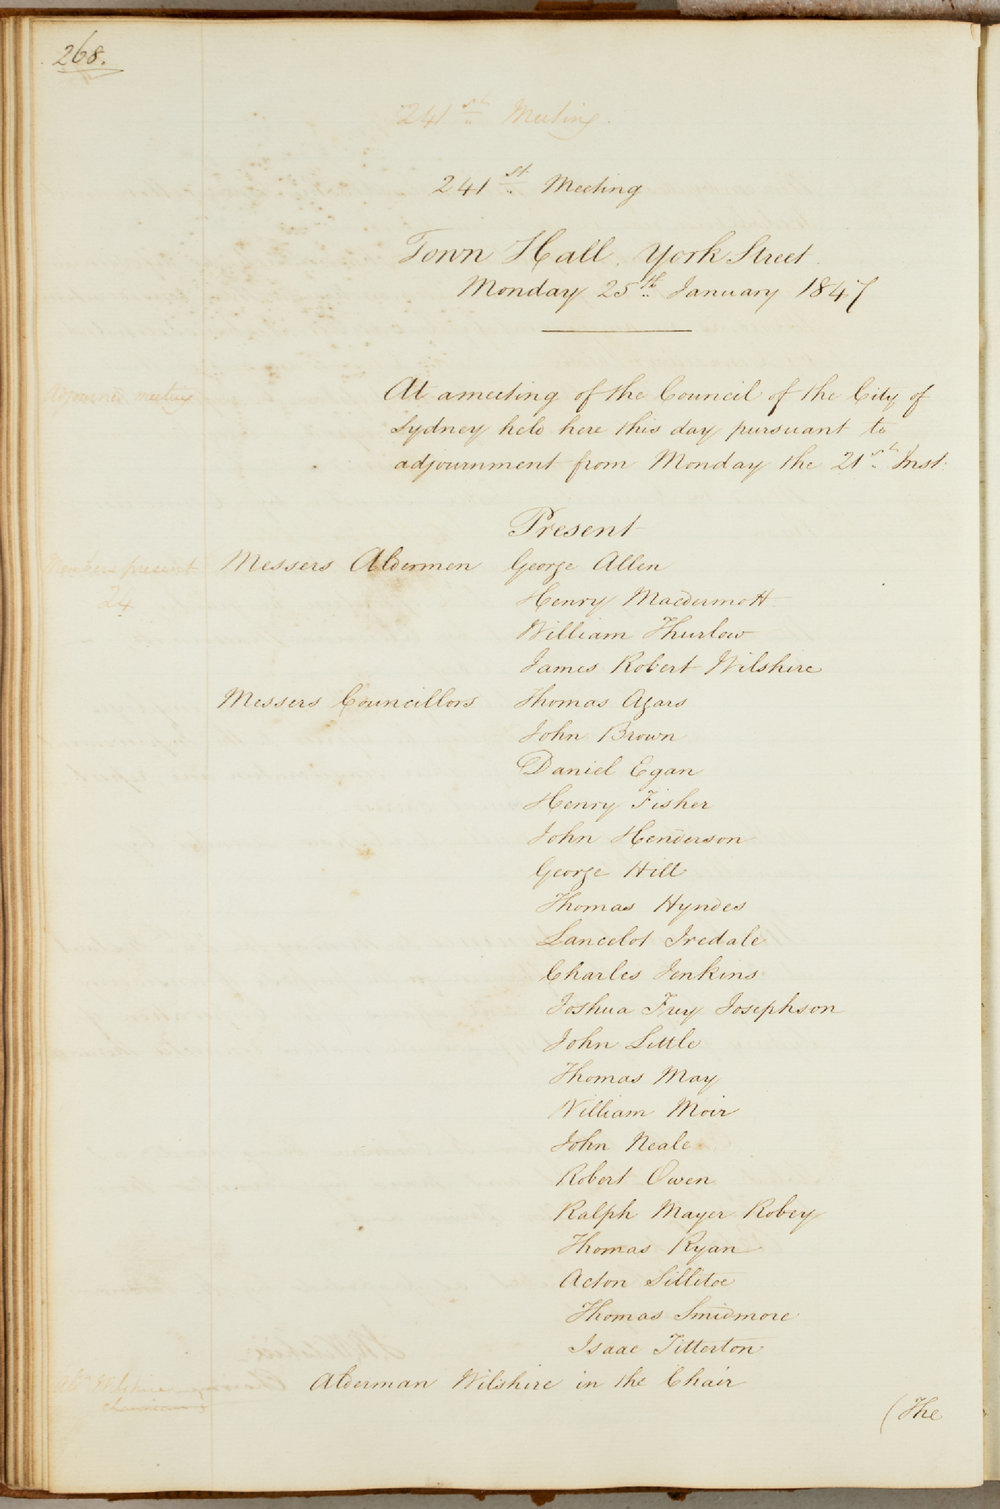 268.
241st Meeting.
241st Meeting
Town Hall, York Street.
Monday 25th January 1847
Adjourned meeting
At a meeting of the Council of the City of
Sydney held here this day pursuant to
adjournment from Monday the 21st Inst.
Present
Members present
24
Messers Aldermen George Allen
Henry Macdermott
William Thurlow
James Robert Wilshire
Messers Councillors Thomas Agars
John Brown
Daniel Egan
Henry Fisher
John Henderson
George Hill
Thomas Hyndes
Lancelot Iredale
Charles Jenkins
Joshua Frey Josephson
John Little
Thomas May
William Moir
John Neale
Robert Owen
Ralph Mayer Robey
Thomas Ryan
Acton Sillitoe
Thomas Smidmore
Isaac Titterton
Aldn Wilshire
chairman
Alderman Wilshire in the Chair
(The